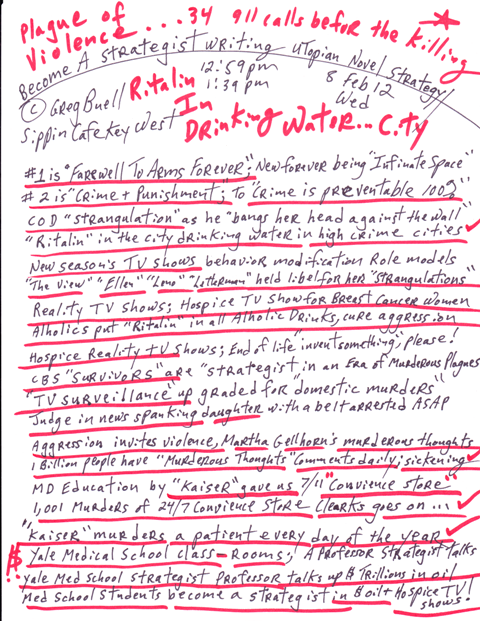 Plague of
Violence...34 911 calls befor the killing
Become A Strategist writing Utopian Novel Strategy
12:59pm
1:39pm
8 Feb 12
Wed
© Greg Buell
Sippin Cafe Key West
Ritalin
In
Drinking Water...City
#1 is "Farewell To Arms Forever"; New forever being "Infinate Space"
#2 is "Crime + Punishment"; to "Crime is preventable 100%"
COD "strangulation" as he "bangs her head against the wall"
"Ritalin" in the city drinking water in high crime cities
New season's TV shows behavior modification Role models
"The View" "Ellen" "Leno" "Letterman" held libel for her "Strangulations"
Reality TV shows; Hospice TV Show for Breast Cancer Women
Alholics put "Ritalin" in all Alholic Drinks, cure aggression
Hospice Reality TV shows; End of life "invent something", please!
CBS "Survivors" are "strategist in an Era of Murderous Plagues
"TV surveillance" up graded for "domestic murders"
Judge in news spanking daughter with a belt arrested ASAP
Aggression invites violence, Martha Gellhorn's murderous thoughts
1 Billion people have "Murderous Thoughts" Comments daily; sickening
MD Education by "Kaiser" gave us 7/11 "Convience store"
1,001 Murders of 24/7 Convience Store Clearks goes on...
"Kaiser" murders a patient every day of the year,
$ Yale Medical School class-rooms; A Professor Strategist Talks
Yale Med School strategist professor talks up $ Trillions in oil
Med School students become a strategist in $ oil + Hospice TV shows!